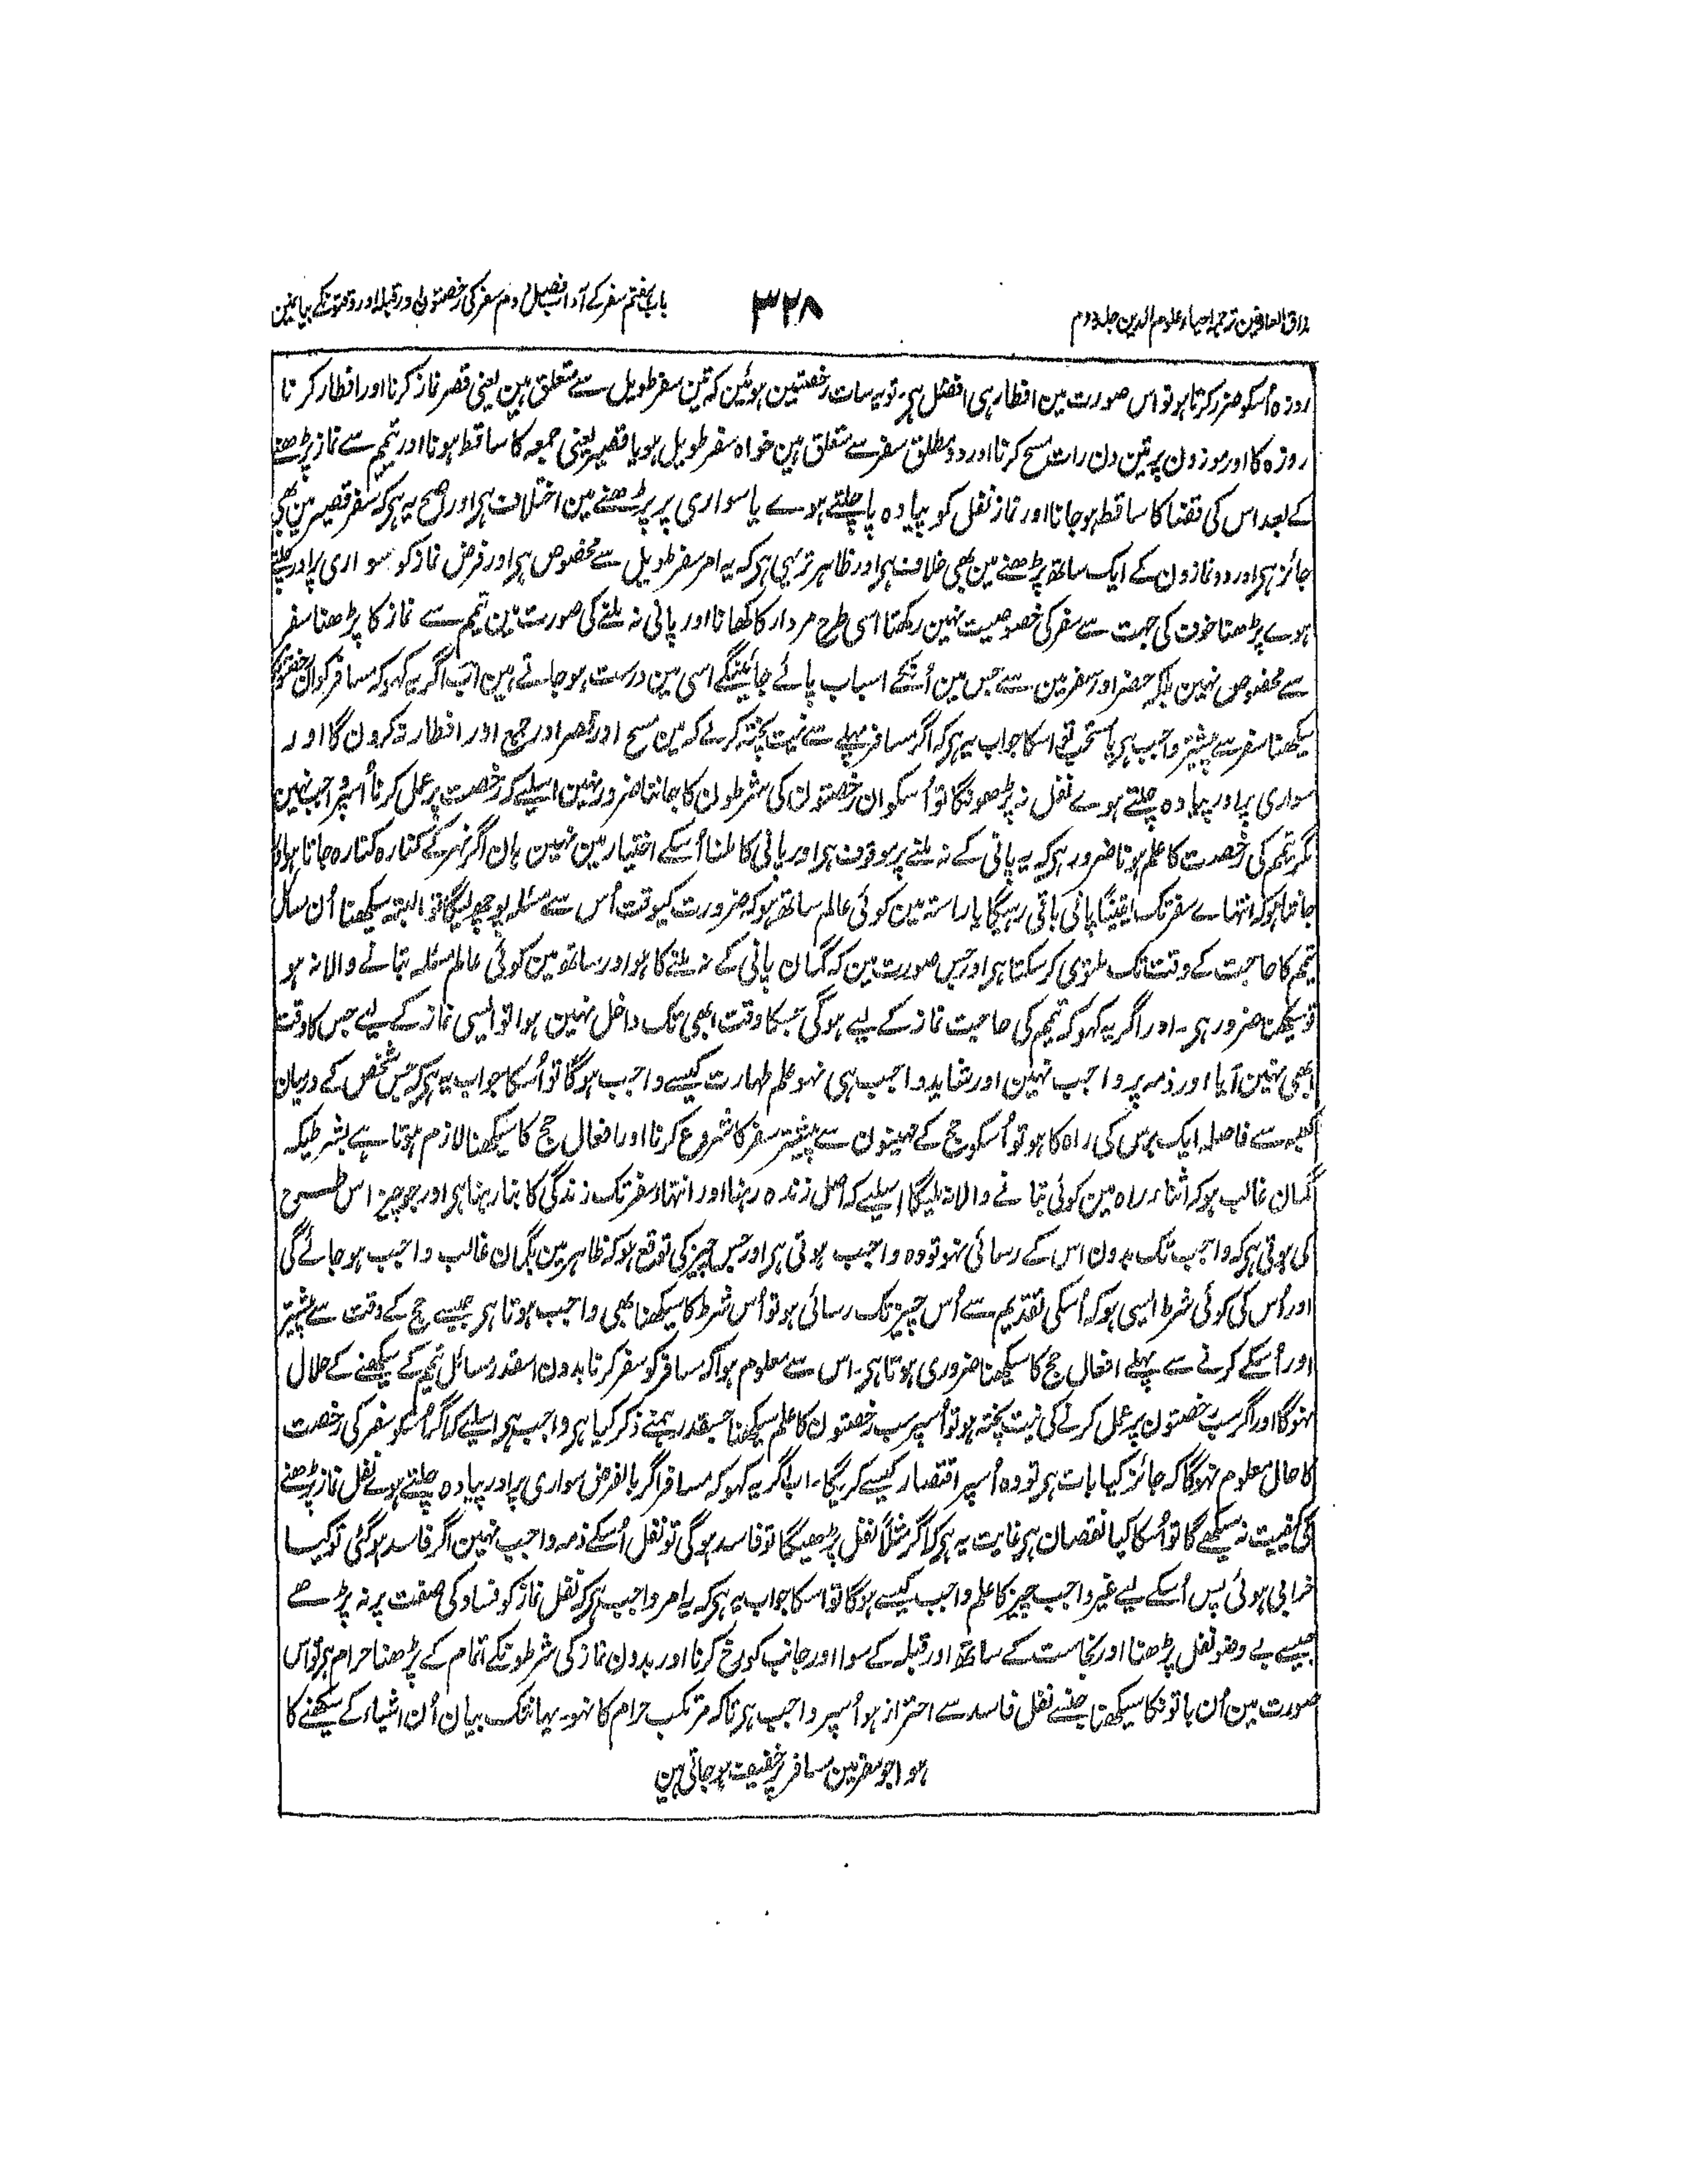 مذاق العارفین ترجمہ احیاء علوم الدین جلد دوم
۳۲۸
باب ہفتم سفر کے آداب فصل دوم سفر کی رخصتون اور قبلہ اور وقتونکے بیانمین
روزہ اُسکو ضرر کرتا ہو تو اس صورت مین افطار ہی افضل ہی۔ تو یہ سات رخصتین ہوئین کہ تین سفر طویل سے متعلق ہین یعنی قصر نماز کرنا اور افطار کرنا
روزہ کا اور موزون پر تین دن رات مسح کرنا اور دو مطلق سفر سے متعلق ہین خواہ سفر طویل ہو یا قصیر یعنی جمعہ کا ساقط ہونا اور تیمم سے نماز پڑھنے
کے بعد اس کی قضا کا ساقط ہو جانا اور نماز نفل کو پیادہ پا چلتے ہوے یا سواری پر پڑھنے مین اختلاف ہی اور صحیح یہ ہی کہ سفر قصیر مین بھی
جائز ہی اور دو نمازون کے ایک ساتھ پڑھنے مین بھی خلاف ہی اور ظاہر تر یہی ہی کہ یہ امر سفر طویل سے مخصوص ہی اور فرض نماز کو سواری پر اور چلتے
ہوے پڑھنا خوف کی جہت سے سفر کی خصوصیت نہین رکھتا اسی طرح مردار کا کھانا اور پانی نہ ملنے کی صورت مین تیمم سے نماز کا پڑھنا سفر
سے مخصوص نہین بلکہ حضر اور سفر مین سے جس مین اُنکے اسباب پائے جائینگے اسی مین درست ہو جاتے ہین اب اگر یہ کہو کہ مسافر کو ان رخصتونکا
سیکھنا سفر سے پیشتر واجب ہی یا مستحب تو اسکا جواب یہ ہی کہ اگر مسافر پہلے سے نیت پختہ کر لے کہ مین مسح اور قصر اور جمع اور افطار نہ کرون گا اور نہ
سواری پر اور پیادہ چلتے ہوے نفل نہ پڑھونگا تو اُسکو ان رخصتون کی شرطون کا جاننا ضرور نہین اسلیے کہ رخصت پر عمل کرنا اُسپر واجب نہین
مگر تیمم کی رخصت کا علم ہونا ضرور ہی کہ یہ پانی کے نہ ملنے پر موقوف ہی اور پانی کا ملنا اُسکے اختیار مین نہین ہان اگر نہر کے کنارہ کنارہ جاتا ہو اور
جانتا ہو کہ انتہاے سفر تک یقیناً پانی باقی رہیگا یا راستہ مین کوئی عالم ساتھ ہو کہ ضرورت کیوقت اُس سے مسئلہ پوچھ لیگا تو البتہ سیکھنا اُن مسائل
تیمم کا حاجت کے وقت تک ملتوی کر سکتا ہی اور جس صورت مین کہ گمان پانی کے نہ ملنے کا ہو اور ساتھ مین کوئی عالم مسئلہ بتانے والا نہ ہو
تو سیکھنا ضرور ہی۔ اور اگر یہ کہو کہ تیمم کی حاجت نماز کے لیے ہوگی جسکا وقت ابھی تک داخل نہین ہوا تو ایسی نماز کے لیے جس کا وقت
ابھی نہین آیا اور ذمہ پر واجب نہین اور شاید واجب ہی نہو علم طہارت کیسے واجب ہوگا تو اُسکا جواب یہ ہی کہ جس شخص کے درمیان
کعبہ سے فاصلہ ایک برس کی راہ کا ہو تو اُسکو حج کے مہینون سے پیشتر سفر کا شروع کرنا اور افعال حج کا سیکھنا لازم ہوتا ہے بشرطیکہ
گمان غالب ہو کہ اثناء راہ مین کوئی بتانے والا نہ ملیگا اسلیے کہ اصل زندہ رہنا اور انتہاء سفر تک زندگی کا بنا رہنا ہی اور جو چیز اس طرح
کی ہوتی ہی کہ واجب تک بدون اس کے رسائی نہو تو وہ واجب ہوتی ہی اور جس چیز کی توقع ہو کہ ظاہر مین بگمان غالب واجب ہو جائے گی
اور اُس کی کوئی شرط ایسی ہو کہ اُسکی تقدیم سے اُس چیز تک رسائی ہو تو اُس شرط کا سیکھنا بھی واجب ہوتا ہی جیسے حج کے وقت سے پیشتر
اور اُسکے کرنے سے پہلے افعال حج کا سیکھنا ضروری ہوتا ہی۔ اس سے معلوم ہوا کہ مسافر کو سفر کرنا بدون اسقدر مسائل تیمم کے سیکھنے کے حلال
نہوگا اور اگر سب رخصتون پر عمل کرنے کی نیت پختہ ہو تو اُسپر سب رخصتون کا علم سیکھنا جسقدر ہمنے ذکر کیا ہی واجب ہی اسلیے کہ اگر اُسکو سفر کی رخصت
کا حال معلوم نہوگا کہ جائز کیا بات ہی تو وہ اُسپر اقتصار کیسے کریگا۔ اب اگر یہ کہو کہ مسافر اگر بالفرض سواری پر اور پیادہ چلتے ہوئے نفل نماز پڑھنے
کی کیفیت نہ سیکھے گا تو اُسکا کیا نقصان ہی غایت یہ ہی کہ اگر مثلاً نفل پڑھیگا تو فاسد ہوگی تو نفل اُسکے ذمہ واجب نہین اگر فاسد ہو گئی تو کیا
خرابی ہوئی پس اُسکے لیے غیر واجب چیز کا علم واجب کیسے ہوگا تو اسکا جواب یہ ہی کہ یہ امر واجب ہی کہ نفل نماز کو فساد کی صفت پر نہ پڑھے
جیسے بے وضو نفل پڑھنا اور نجاست کے ساتھ اور قبلہ کے سوا اور جانب کو رخ کرنا اور بدون نماز کی شرطونکے اتمام کے پڑھنا حرام ہی تو اس
صورت مین اُن باتونکا سیکھنا جنسے نفل فاسد سے احتراز ہو اُسپر واجب ہی تاکہ مرتکب حرام کا نہو۔ یہانتک بیان اُن اشیاء کے سیکھنے کا
ہوا جو سفر مین مسافر پر خفیف ہو جاتی ہین